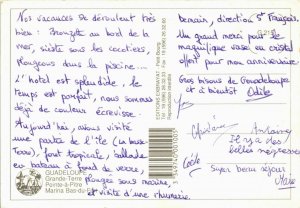 Nos vacances se déroulent très
bien : Bronzette au bord de la
mer, sieste sous les cocotiers,
Plongeons dans la piscine...
L'hôtel est splendide, le
temps est parfait, nous sommes
déjà de couleur écrevisse !
Aujourd'hui, avons visité
une partie de l'île (la basse-
Terre), forêt tropicale, ballade
en bateau à fond de verre,
plongée sous marine et
visite d'une rhumerie.
Demain, direction St François.
Un grand merci pour le
magnifique vase en cristal
offert pour mon anniversaire
Gros bisous de Guadeloupe
et à bientôt Odile
Ghislaine
Antoine
Il y a des
belles négresses
Cécile
Super beau séjour
GUADELOUPE
Grande-Terre
Pointe-à-Pitre
Marina Bas-du-Fort